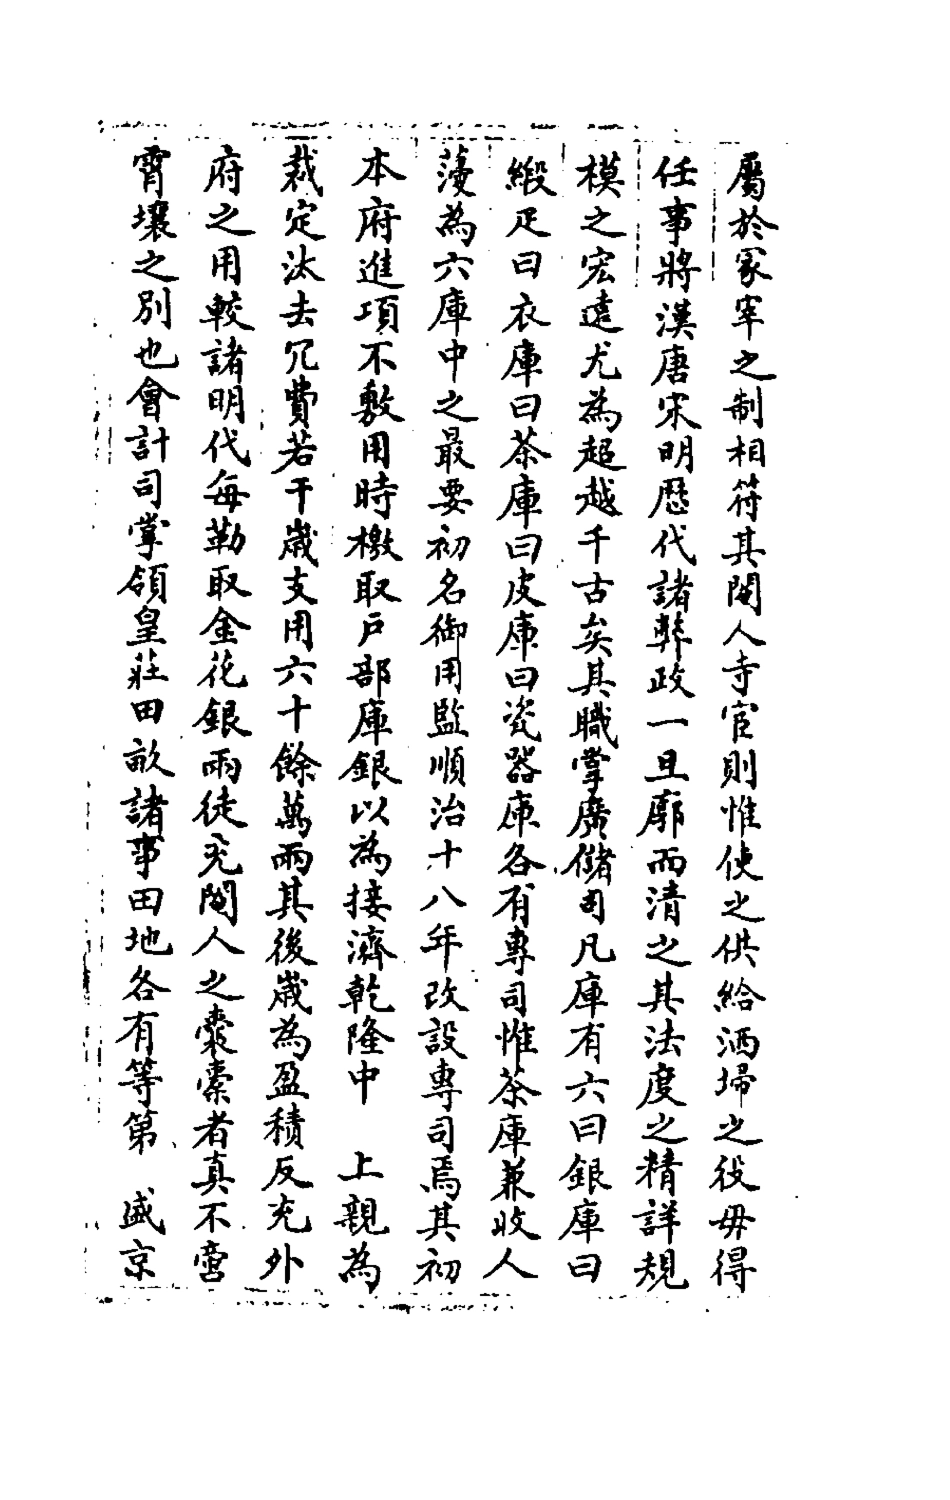 屬於冢宰之制相符其閹人寺宦則惟使之供給洒埽之役毋得
任事將漢唐宋明歷代諸弊政一旦廓而清之其法度之精詳規
模之宏遠尤為超越千古矣其職掌廣儲司凡庫有六曰銀庫曰
緞疋曰衣庫曰茶庫曰皮庫曰瓷器庫各有專司惟茶庫兼收人
薓為六庫中之最要初名御用監順治十八年改設專司焉其初
本府進項不敷用時檄取戶部庫銀以為接濟乾隆中 上親為
裁定汰去冗費若干歲支用六十餘萬兩其後歲為盈積反充外
府之用較諸明代每勒取金花銀兩徒充閹人之囊橐者真不啻
霄壤之別也會計司掌領皇莊田畝諸事田地各有等第 盛京